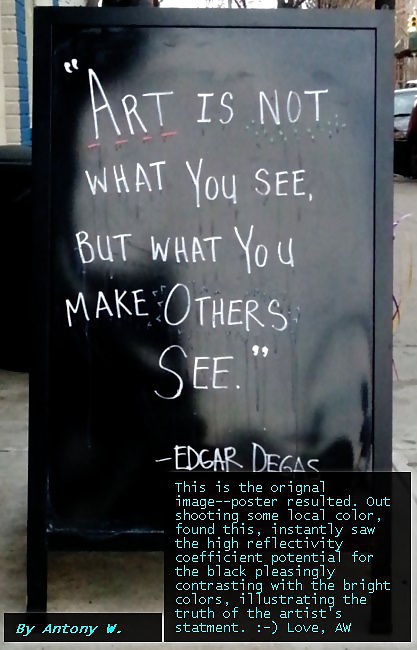 "ART IS NOT
WHAT YOU SEE,
BUT WHAT YOU
MAKE OTHERS
SEE."
-EDGAR DEGAS
This is the orignal
image--poster resulted. Out
shooting some local color,
found this, instantly saw
the high reflectivity
coefficient potential for
the black pleasingly
contrasting with the bright
colors, illustrating the
truth of the artist's
statment. :-) Love, AW
By Antony W.